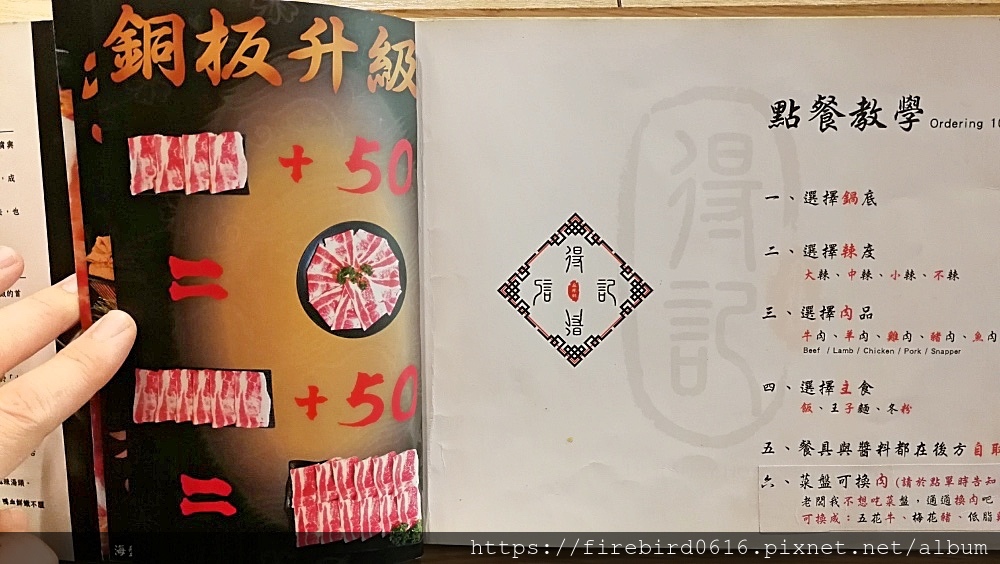 銅板升級
+ 50
=
+ 50
=
得
信 記
得記
點餐教學 Ordering 10
一、選擇鍋底
二、選擇辣度
大辣、中辣、小辣、不辣
三、選擇肉品
牛肉、羊肉、雞肉、豬肉、魚肉
Beef / Lamb / Chicken / Pork / Snapper
四、選擇主食
飯、王子麵、冬粉
五、餐具與醬料都在後方自取
六、菜盤可換肉(請於點單時告知
老闆我不想吃菜盤，通通換肉吧
可換成：五花牛、梅花豬、低脂
https://firebird0616.pixnet.net/album